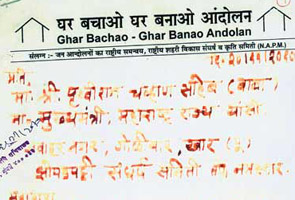 घर बचाओ घर बनाओ आंदोलन
Ghar Bachao - Ghar Banao Andolan
संलग्न :- जन आन्दोलनों का राष्ट्रीय समन्वय, राष्ट्रीय शहरी विकास संघर्ष व कृति समिती (N.A.P.M.)
प्रति,
मा. श्री. पृथ्वीराज चव्हाण साहेब (बाबा)
मा. मुख्यमंत्री, महाराष्ट्र राज्य यांसी
जवाहर नगर, गोळीबार, खार (पू.)
झोपडपट्टी संघर्ष समिती चा नमस्कार